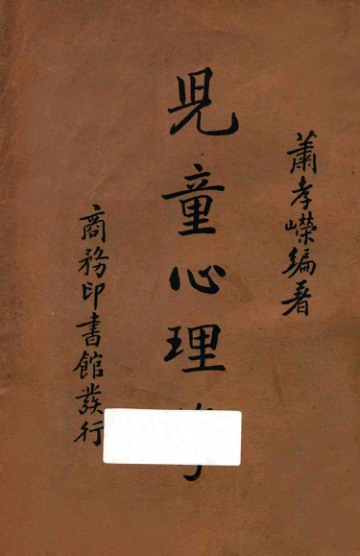 蕭孝嶸編著
兒童心理
商務印書館發行